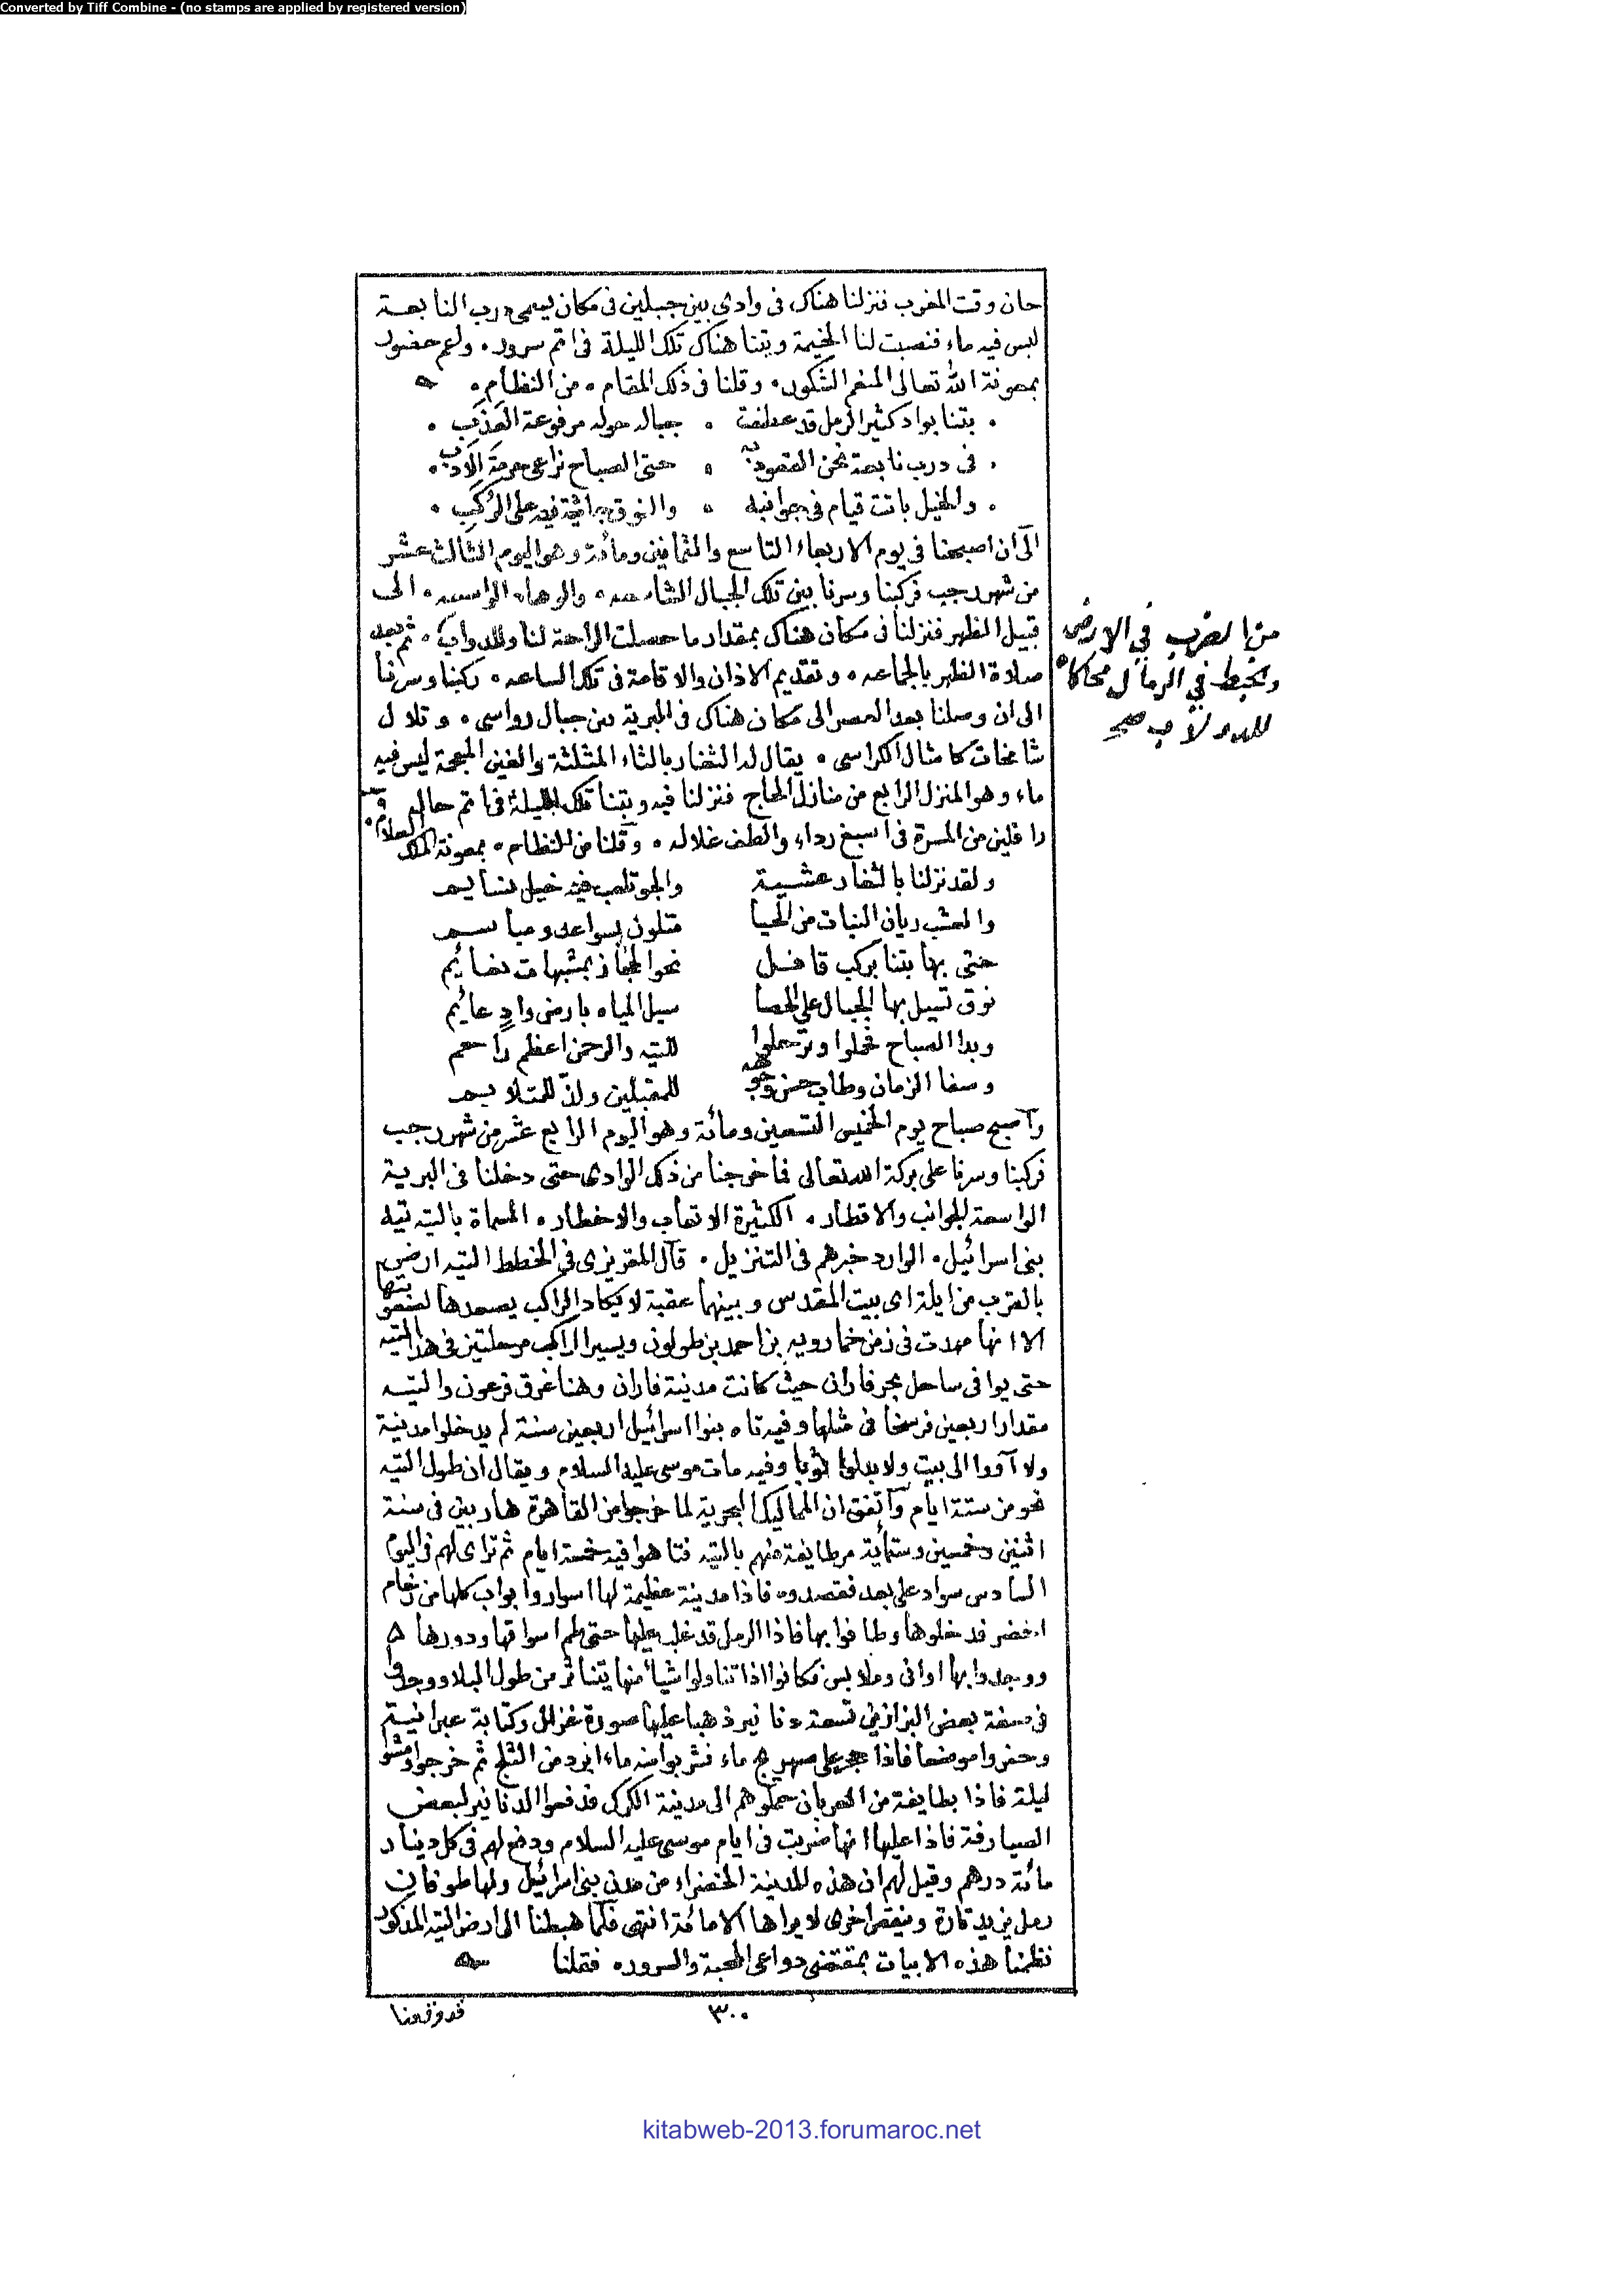 Converted by Tiff Combine - (no stamps are applied by registered version)
حان وقت المغرب فنزلنا هناك في وادي بين جبلين في مكان يسمى درب النابعة
ليس فيه ماء فنصبت لنا الخيمة وبتنا هناك تلك الليلة في اتم سرور ٠ حضور
بمعونة الله تعالى المنعم الشكور ٠ وقلنا في ذلك المقام ٠ من النظام ٠
٠ بتنا بواد كثير الرمل قد عطفت ٠ جبال حوله مرفوعة العذب ٠
٠ في درب نابعة نحن القعود به ٠ حتى الصباح نراعي حرمة الادب ٠
٠ والخيل باتت قيام في جوانبه ٠ والنوق جاثية فيه على الركب ٠
الى ان اصبحنا في يوم الاربعاء التاسع والثمانين ومائة وهو اليوم الثالث عشر
من شهر رجب فركبنا وسرنا بين تلك الجبال ٠ والوهاد ٠ الى
قبيل الظهر فنزلنا في مكان هناك بمقدار ما حصلت الراحة لنا وللدواب ٠ ثم بعد
من الضرب في الارض
صلاة الظهر بالجماعه ٠ وتقديم الاذان والاقامة في تلك الساعه ٠ ركبنا وسرنا
في الرمال
الى ان وصلنا بعد العصر الى مكان هناك في البرية بين جبال رواسي ٠ وتلال
صح
شامخات كامثال الكراسي ٠ يقال له الثغار بالثاء المثلثة والغين المعجمة ليس فيه
ماء وهو المنزل الرابع من منازل الحاج فنزلنا فيه وبتنا تلك الليلة في اتم حاله
رافلين من المسرة في اسبغ رداء والطف غلاله ٠ وقلنا من النظام ٠ بمعونة الملك العلام ٠
ولقد نزلنا بالثغار عشية والجو تلعب فيه خيل نسايم
والعشب ريان النبات من الحيا متلون بسواعد ومباسم
حتى بها بتنا بركب قافل نحو الحجاز
نوق تسيل بها الجبال على الحصا سيل المياه بارض واد عايم
وبدا الصباح فحملوا وترحلوا للتيه والرحمن اعظم راحم
وصفا الزمان وطاب حسن وجوهه للمقبلين ولذ للمتلايم
واصبح صباح يوم الخميس التسعين ومائة وهو اليوم الرابع عشر من شهر رجب
فركبنا وسرنا على بركة الله تعالى فما خرجنا من ذلك الوادي حتى دخلنا في البرية
الواسعة الجوانب والاقطار ٠ الكثيرة الاتعاب والاخطار ٠ المسماة بالتيه تيه
بني اسرائيل ٠ الوارد خبرهم في التنزيل ٠ قال المقريزي في الخطط التيه ارض
بالقرب من ايلة اي بيت المقدس وبينهما عقبة لا يكاد الراكب يصعدها لصعوبتها
الا انها مهدت في زمن خمارويه بن احمد بن طولون ويسير الراكب مرحلتين في هذا التيه
حتى يوافي ساحل بحر فاران حيث كانت مدينة فاران وهنا غرق فرعون والتيه
مقدار اربعين فرسخا في مثلها وفيه تاه بنوا اسرائيل اربعين سنة لم يدخلوا مدينة
ولا آووا الى بيت ولا بدلوا ثوبا وفيه مات موسى عليه السلام ويقال ان طول التيه
نحو من ستة ايام واتفق ان المماليك البحرية لما خرجوا من القاهرة هاربين في سنة
اثنين وخمسين وستماية مر طايفة منهم بالتيه فتاهوا فيه خمسة ايام ثم تراى لهم في اليوم
السادس سواد على بعد فقصدوه فاذا مدينة عظيمة لها اسوار وابواب كلها من رخام
اخضر فدخلوها وطافوا بها فاذا الرمل قد غلب عليها حتى طم اسواقها ودورها
ووجدوا بها اواني وملابس فكانوا اذا تناولوا شيأ منها يتناثر من طول البلا ووجدوا
في صفة بعض البزازين تسعة دنانير ذهبا عليها صورة غزال وكتابة عبرانية
وحفروا موضعا فاذا حجر على صهريج ماء فشربوا منه ماء ابرد من الثلج ثم خرجوا ومشوا
ليلة فاذا بطايفة من العربان حملوهم الى مدينة الكرك فدفعوا الدنانير لبعض
الصيارفة فاذا عليها انها ضربت في ايام موسى عليه السلام ودفع لهم في كل دينار
مائة درهم وقيل لهم ان هذه المدينة الخضراء من مدن بني اسرائيل ولها طوفان
رمل يزيد تارة وينقص اخرى لا يراها الا تائه انتهى فلما هبطنا الى ارض التيه المذكور
نظمنا هذه الابيات بمقتضى دواعي المحبة والسرور ٠ فقلنا
٣٠٠
kitabweb-2013.forumaroc.net